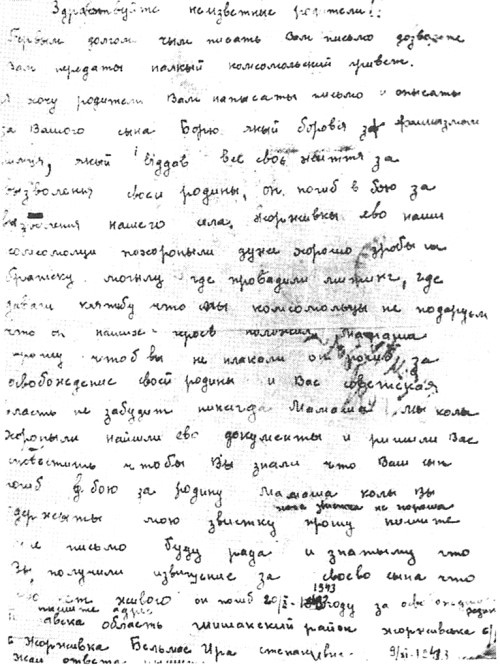 Здравствуйте неизвестные родители!!
Первым долгом чым писать Вам письмо дозвольте
Вам передаты палкый комсомольский привет.
Я хочу родители Вам напысаты письмо и описаты
за Вашого сына Борю якый боровся за фашизмом
якый віддав все своє життя за
своеи родины, он погиб в бою за
нашего села. Жорживкы ево наши
комсомолци похоронылы дуже хорошо зробылы
братску могылу где проводили митинг, где
давали клятву что мы комсомольцы не подарум
что он наших кров положил мамаша
прошу чтоб вы не плакали он погиб за
освобождение своей родины и Вас советская
власть не забудит никогда Мамаша мы колы
хоронылы найшли ево документы и ришили Вас
известить чтобы Вы знали что Ваш сын
погиб в бою за родину мамаша колы Вы
наша звистка не хороша
держыте мою звистку прошу пишите
письмо буду рада и знатыму что
Вы получили извищение за своево сына что
живого он погиб 20/ІХ-1943 году за
пышите адрес
область шишакский район Жорживска с/р
с Жорживка Бельмас Ира степановна. 9/ІІ-1943
Жду ответа